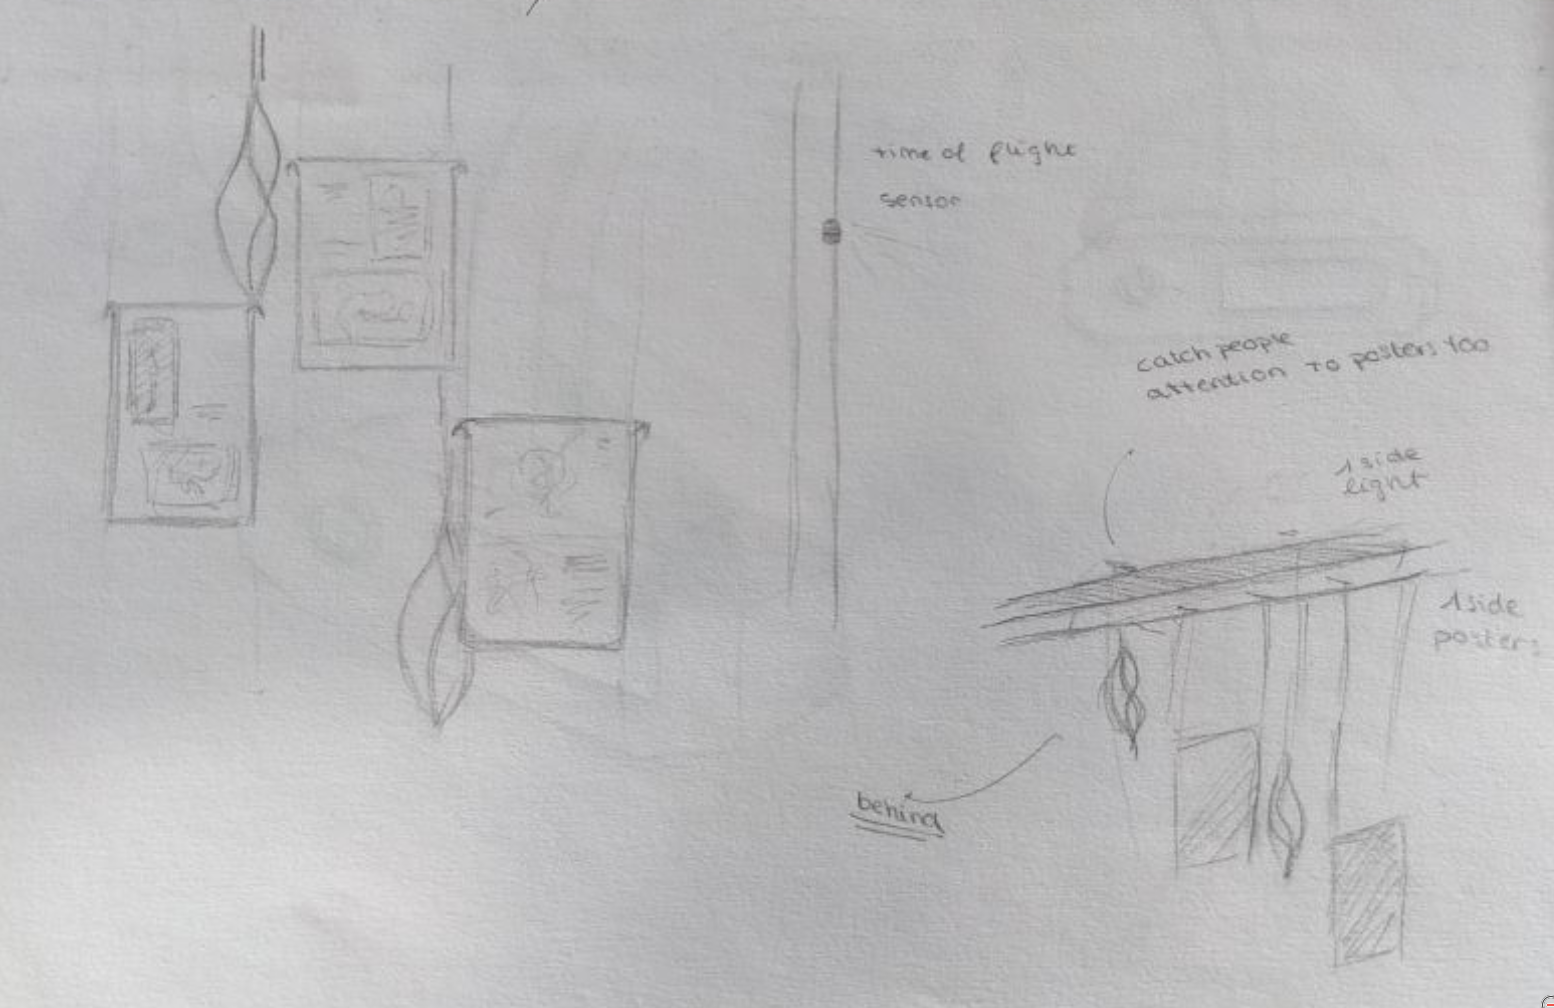 time of flight
sensor
catch people
attention to posters too
1 side
light
1 side
posters
behind